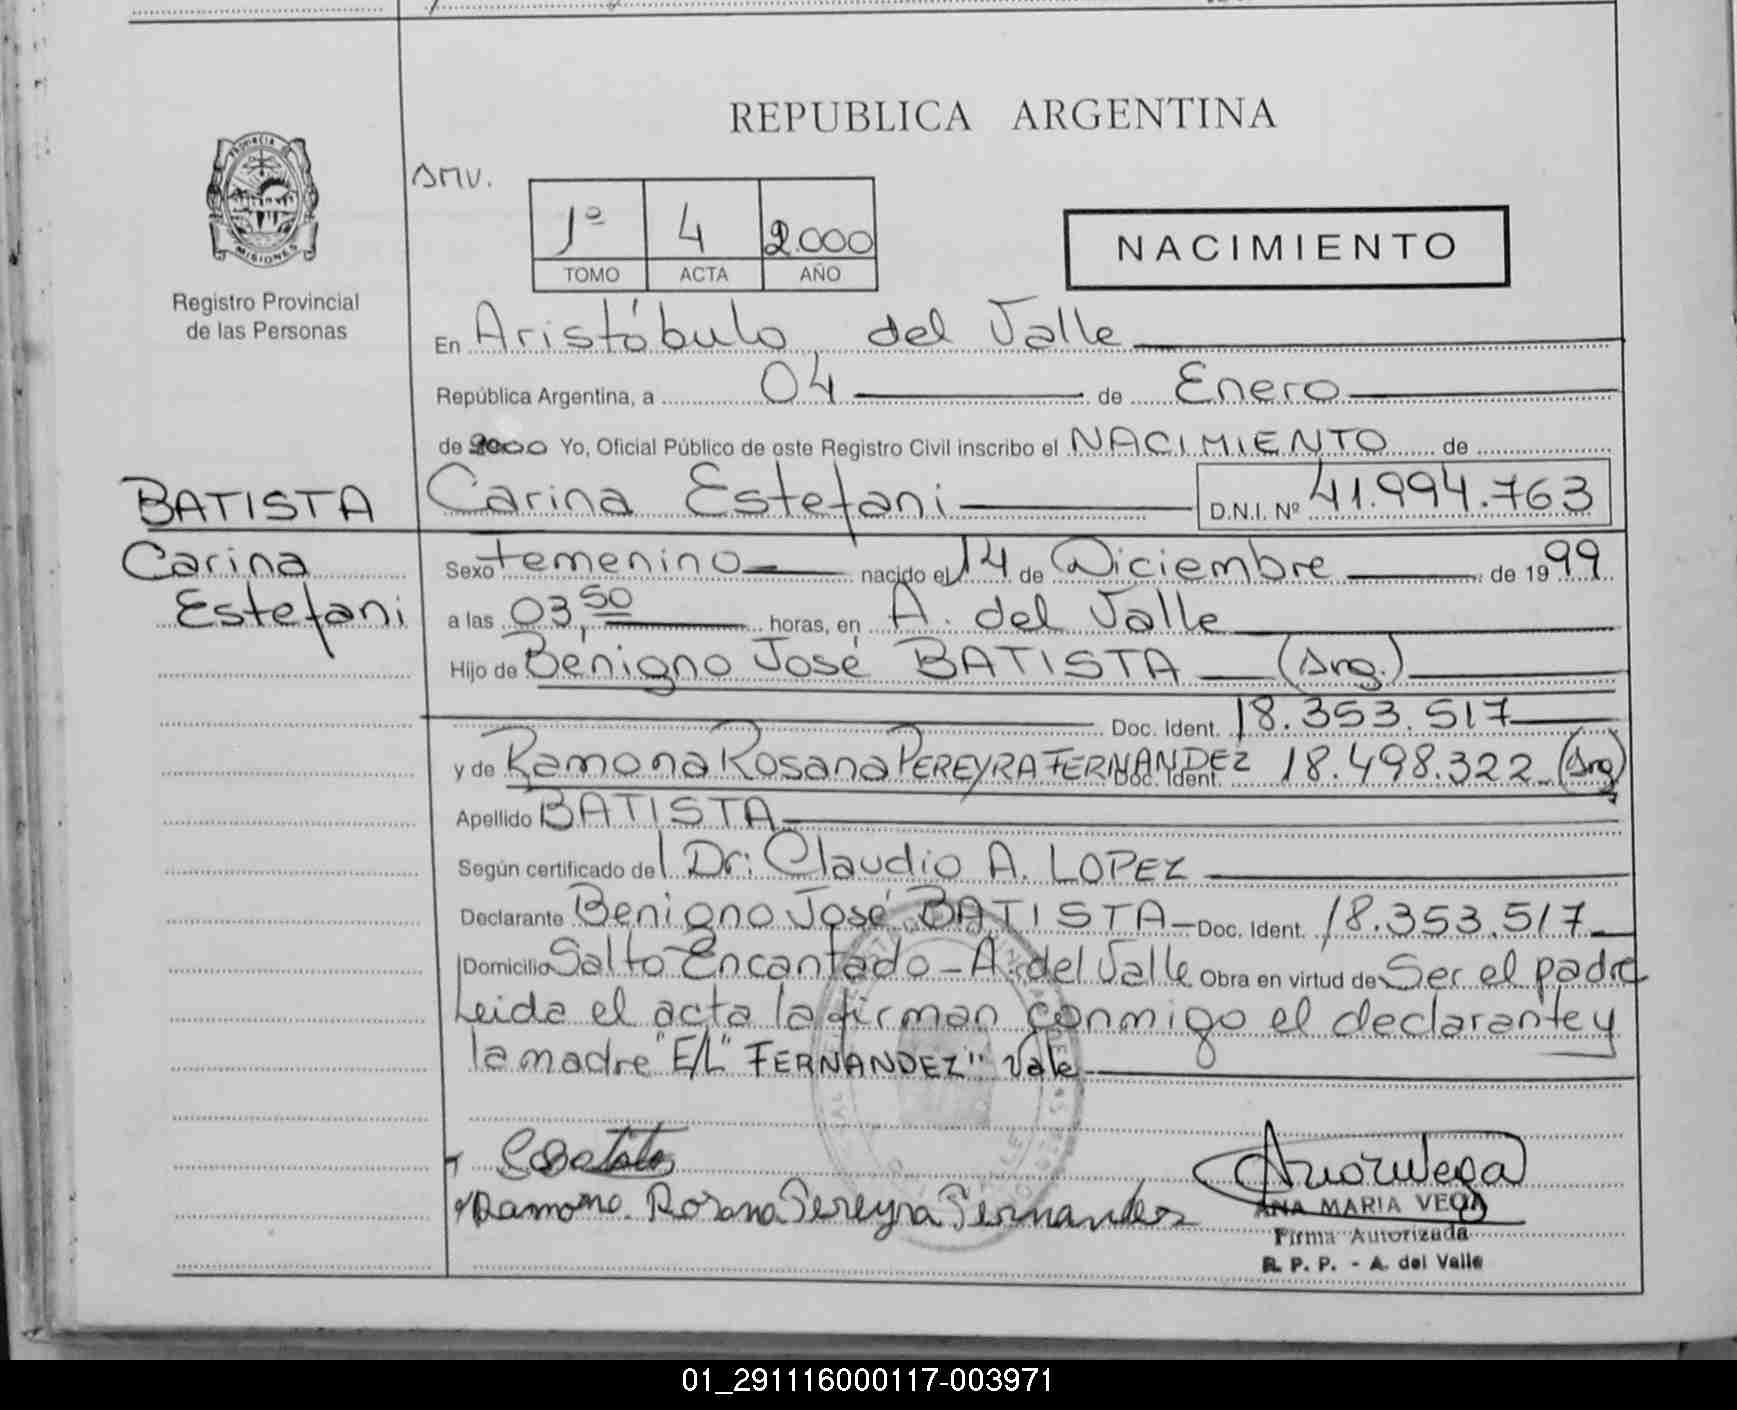 REPUBLICA ARGENTINA
PROVINCIA DE
MISIONES
Registro Provincial
de las Personas
SMV.
1º 4 2.000
TOMO ACTA AÑO
NACIMIENTO
En Aristóbulo del Valle
República Argentina, a 04 de Enero
de 2000 Yo, Oficial Público de este Registro Civil inscribo el NACIMIENTO de
BATISTA
Carina
Estefani
Carina Estefani D.N.I. Nº 41.994.763
Sexo femenino nacido el 14 de Diciembre de 1999
a las 03,50 horas, en A. del Valle
Hijo de Benigno José BATISTA (Arg.)
Doc. Ident. 18.353.517
y de Ramona Rosana PEREYRA FERNANDEZ Doc. Ident. 18.498.322 (Arg)
Apellido BATISTA
Según certificado del Dr: Claudio A. LOPEZ
Declarante Benigno José BATISTA - Doc. Ident. 18.353.517
Domicilio Salto Encantado - A. del Valle Obra en virtud de Ser el padre
Leida el acta la firman conmigo el declarante y
la madre "E/L" FERNANDEZ" Vale
Ramona Rosana Pereyra Fernandez
ANA MARIA VEGA
Firma Autorizada
R. P. P. - A. del Valle
01_291116000117-003971